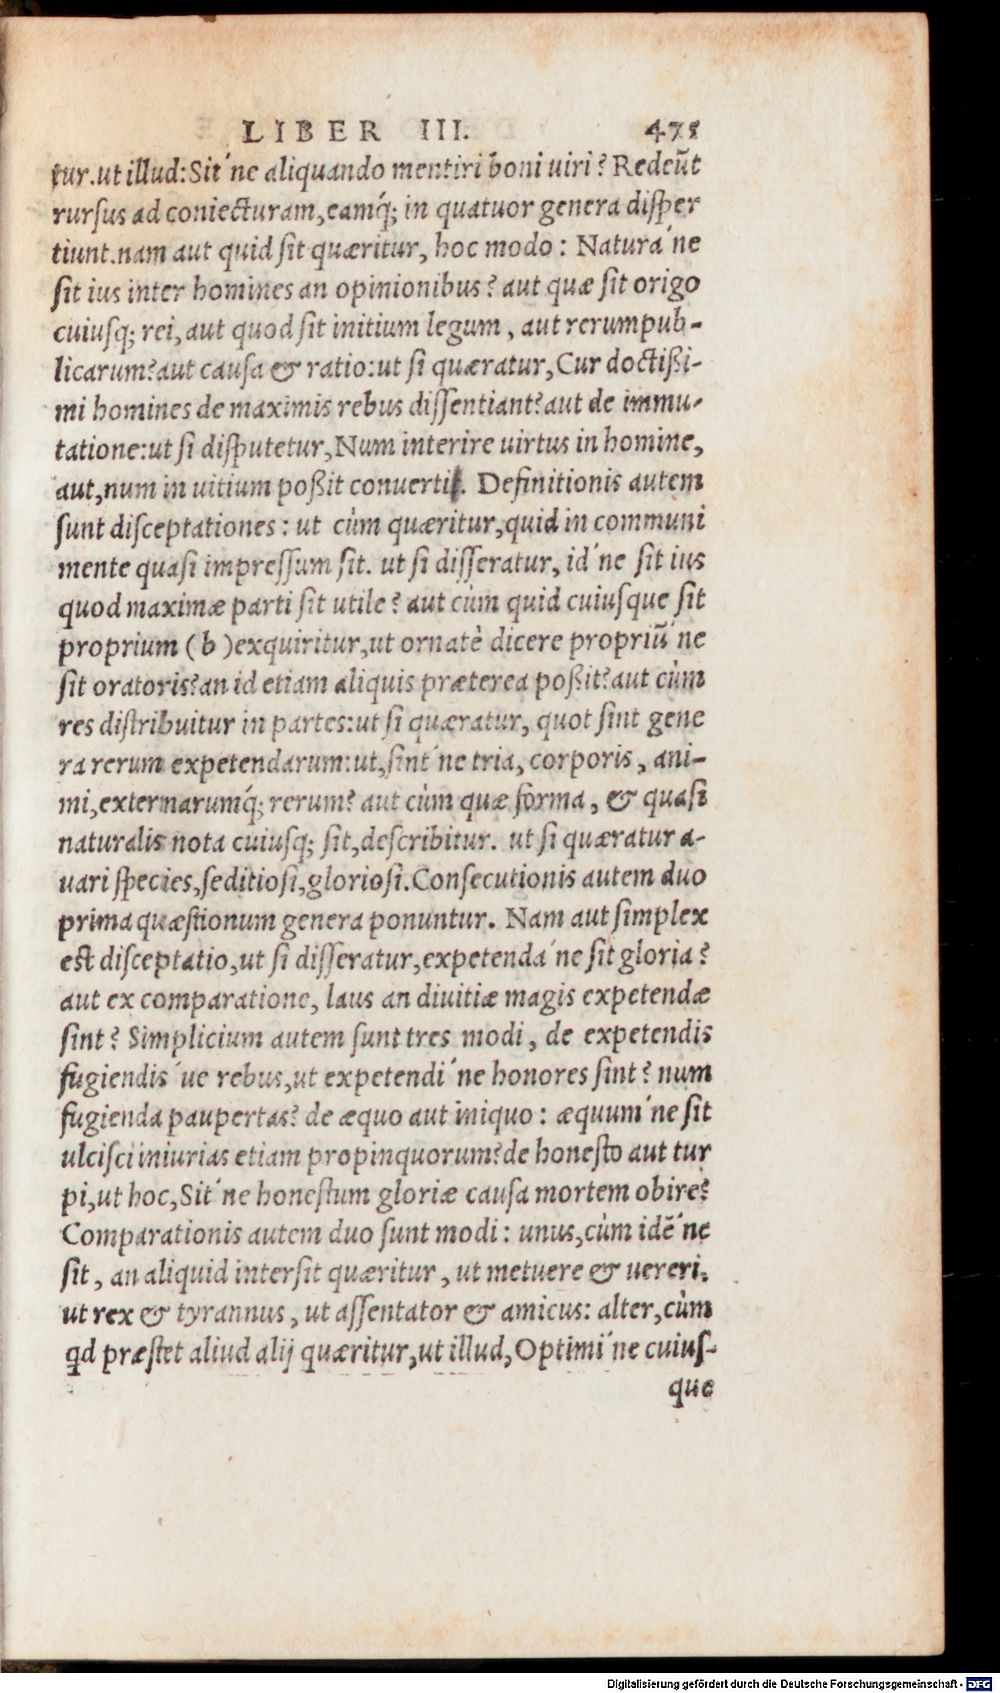 LIBER III. 471
tur.ut illud:Sit´ne aliquando mentiri boni uiri? Redeūt
rursus ad coniecturam,eamq́; in quatuor genera disper
tiunt.nam aut quid sit quæritur, hoc modo: Natura´ne
sit ius inter homines an opinionibus? aut quæ sit origo
cuiusq; rei, aut quod sit initium legum, aut rerumpub-
licarum?aut causa & ratio:ut si quæratur,Cur doctißi-
mi homines de maximis rebus dissentiant?aut de immu-
tatione:ut si disputetur,Num interire uirtus in homine,
aut,num in uitium poßit conuerti. Definitionis autem
sunt disceptationes: ut cùm quæritur,quid in communi
mente quasi impressum sit. ut si disseratur, id´ne sit ius
quod maximæ parti sit utile? aut cùm quid cuiusque sit
proprium (b)exquiritur,ut ornatè dicere propriū´ne
sit oratoris?an id etiam aliquis præterea poßit?aut cùm
res distribuitur in partes:ut si quæratur, quot sint gene
ra rerum expetendarum:ut,sint´ne tria, corporis, ani-
mi,externarumq́; rerum? aut cùm quæ forma, & quasi
naturalis nota cuiusq; sit,describitur. ut si quæratur a-
uari species,seditiosi,gloriosi.Consecutionis autem duo
prima quæstionum genera ponuntur. Nam aut simplex
est disceptatio,ut si disseratur,expetenda´ne sit gloria?
aut ex comparatione, laus an diuitiæ magis expetendæ
sint? Simplicium autem sunt tres modi, de expetendis
fugiendis´ue rebus,ut expetendi´ne honores sint? num
fugienda paupertas? de æquo aut iniquo: æquum´ne sit
ulcisci iniurias etiam propinquorum?de honesto aut tur
pi,ut hoc,Sit´ne honestum gloriæ causa mortem obire?
Comparationis autem duo sunt modi: unus,cùm idē´ne
sit, an aliquid intersit quæritur, ut metuere & uereri.
ut rex & tyrannus, ut assentator & amicus: alter,cùm
qd præstet aliud alij quæritur,ut illud,Optimi´ne cuius-
que
Digitalisierung gefördert durch die Deutsche Forschungsgemeinschaft - DFG